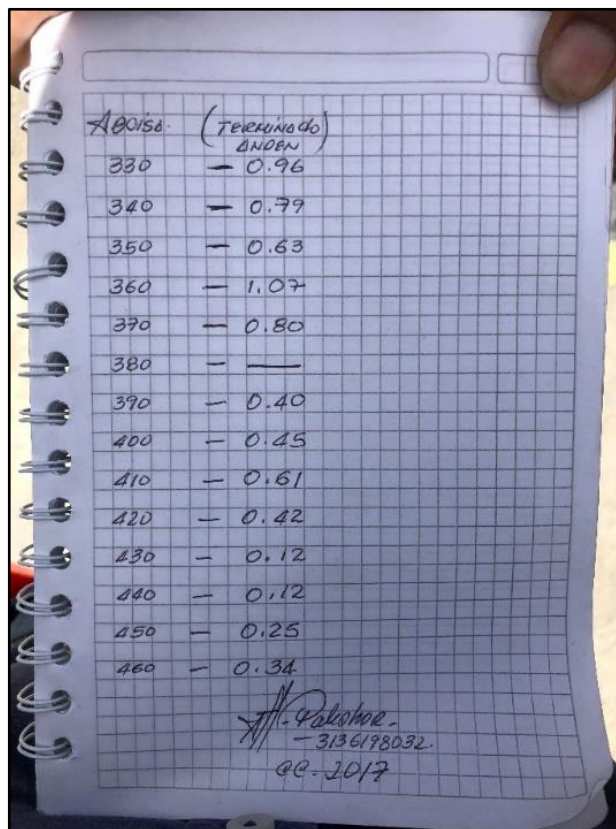 Abcisa. (TERMINADO
ANDEN)
330 — 0.96
340 — 0.79
350 — 0.63
360 — 1.07
370 — 0.80
380 — —
390 — 0.40
400 — 0.45
410 — 0.61
420 — 0.42
430 — 0.12
440 — 0.12
450 — 0.25
460 — 0.34
— 3136198032.
CC. 2017